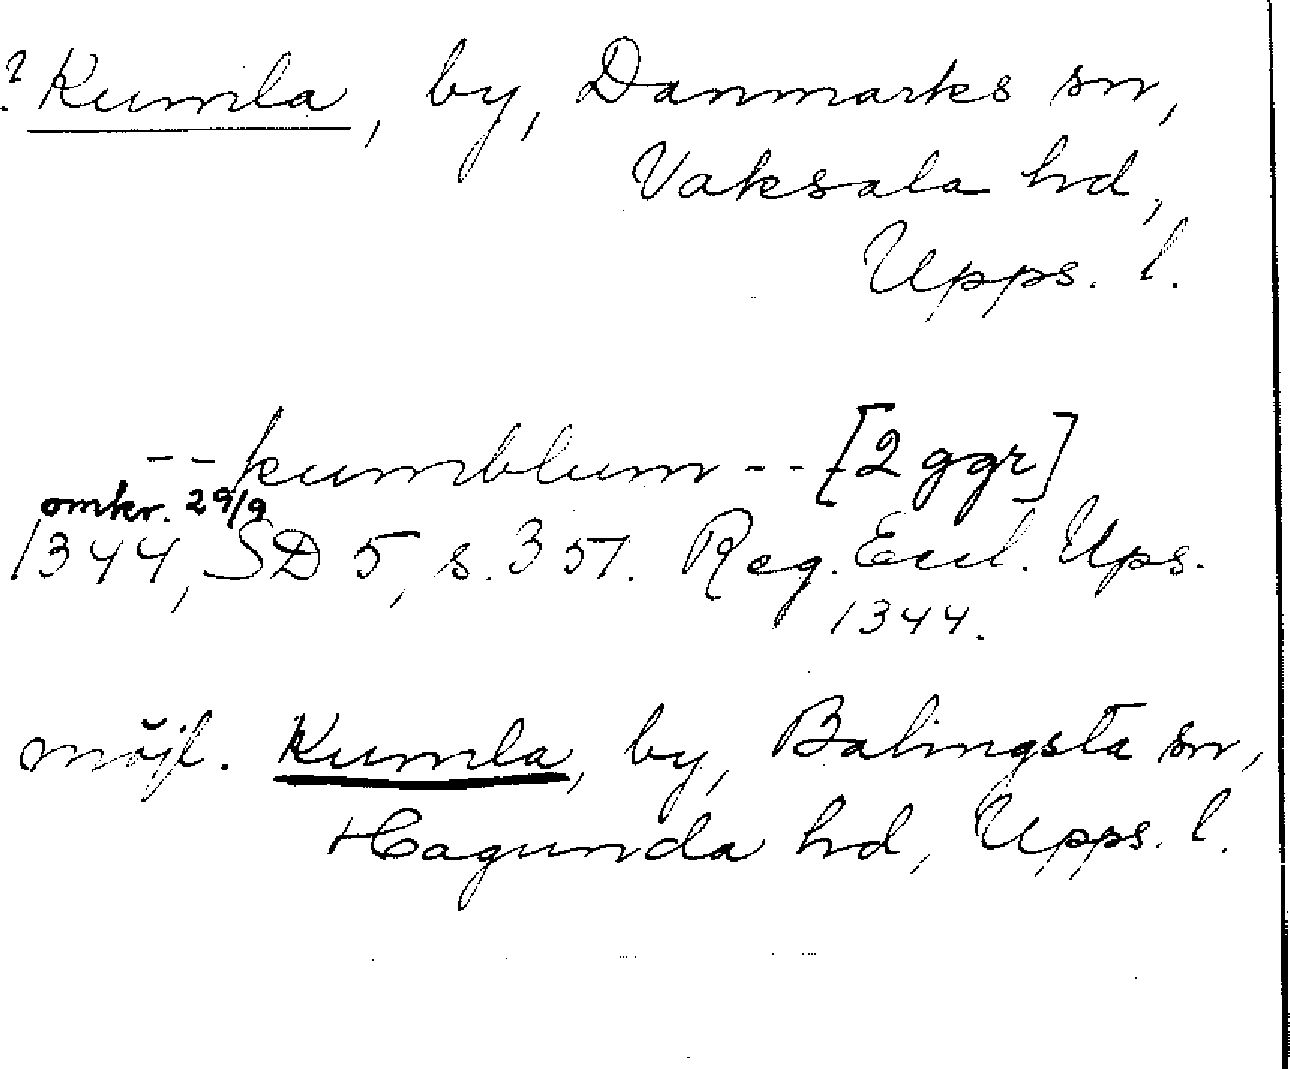 ? Kumla, by, Danmarks sn,
Vaksala hd,
Upps. l.
--kumblum-- [2 ggr]
omkr. 29/9
1344, SD 5, s. 351. Reg. Eccl. Ups.
1344.
möjl. Kumla, by, Balingsta sn,
Hagunda hd, Upps. l.